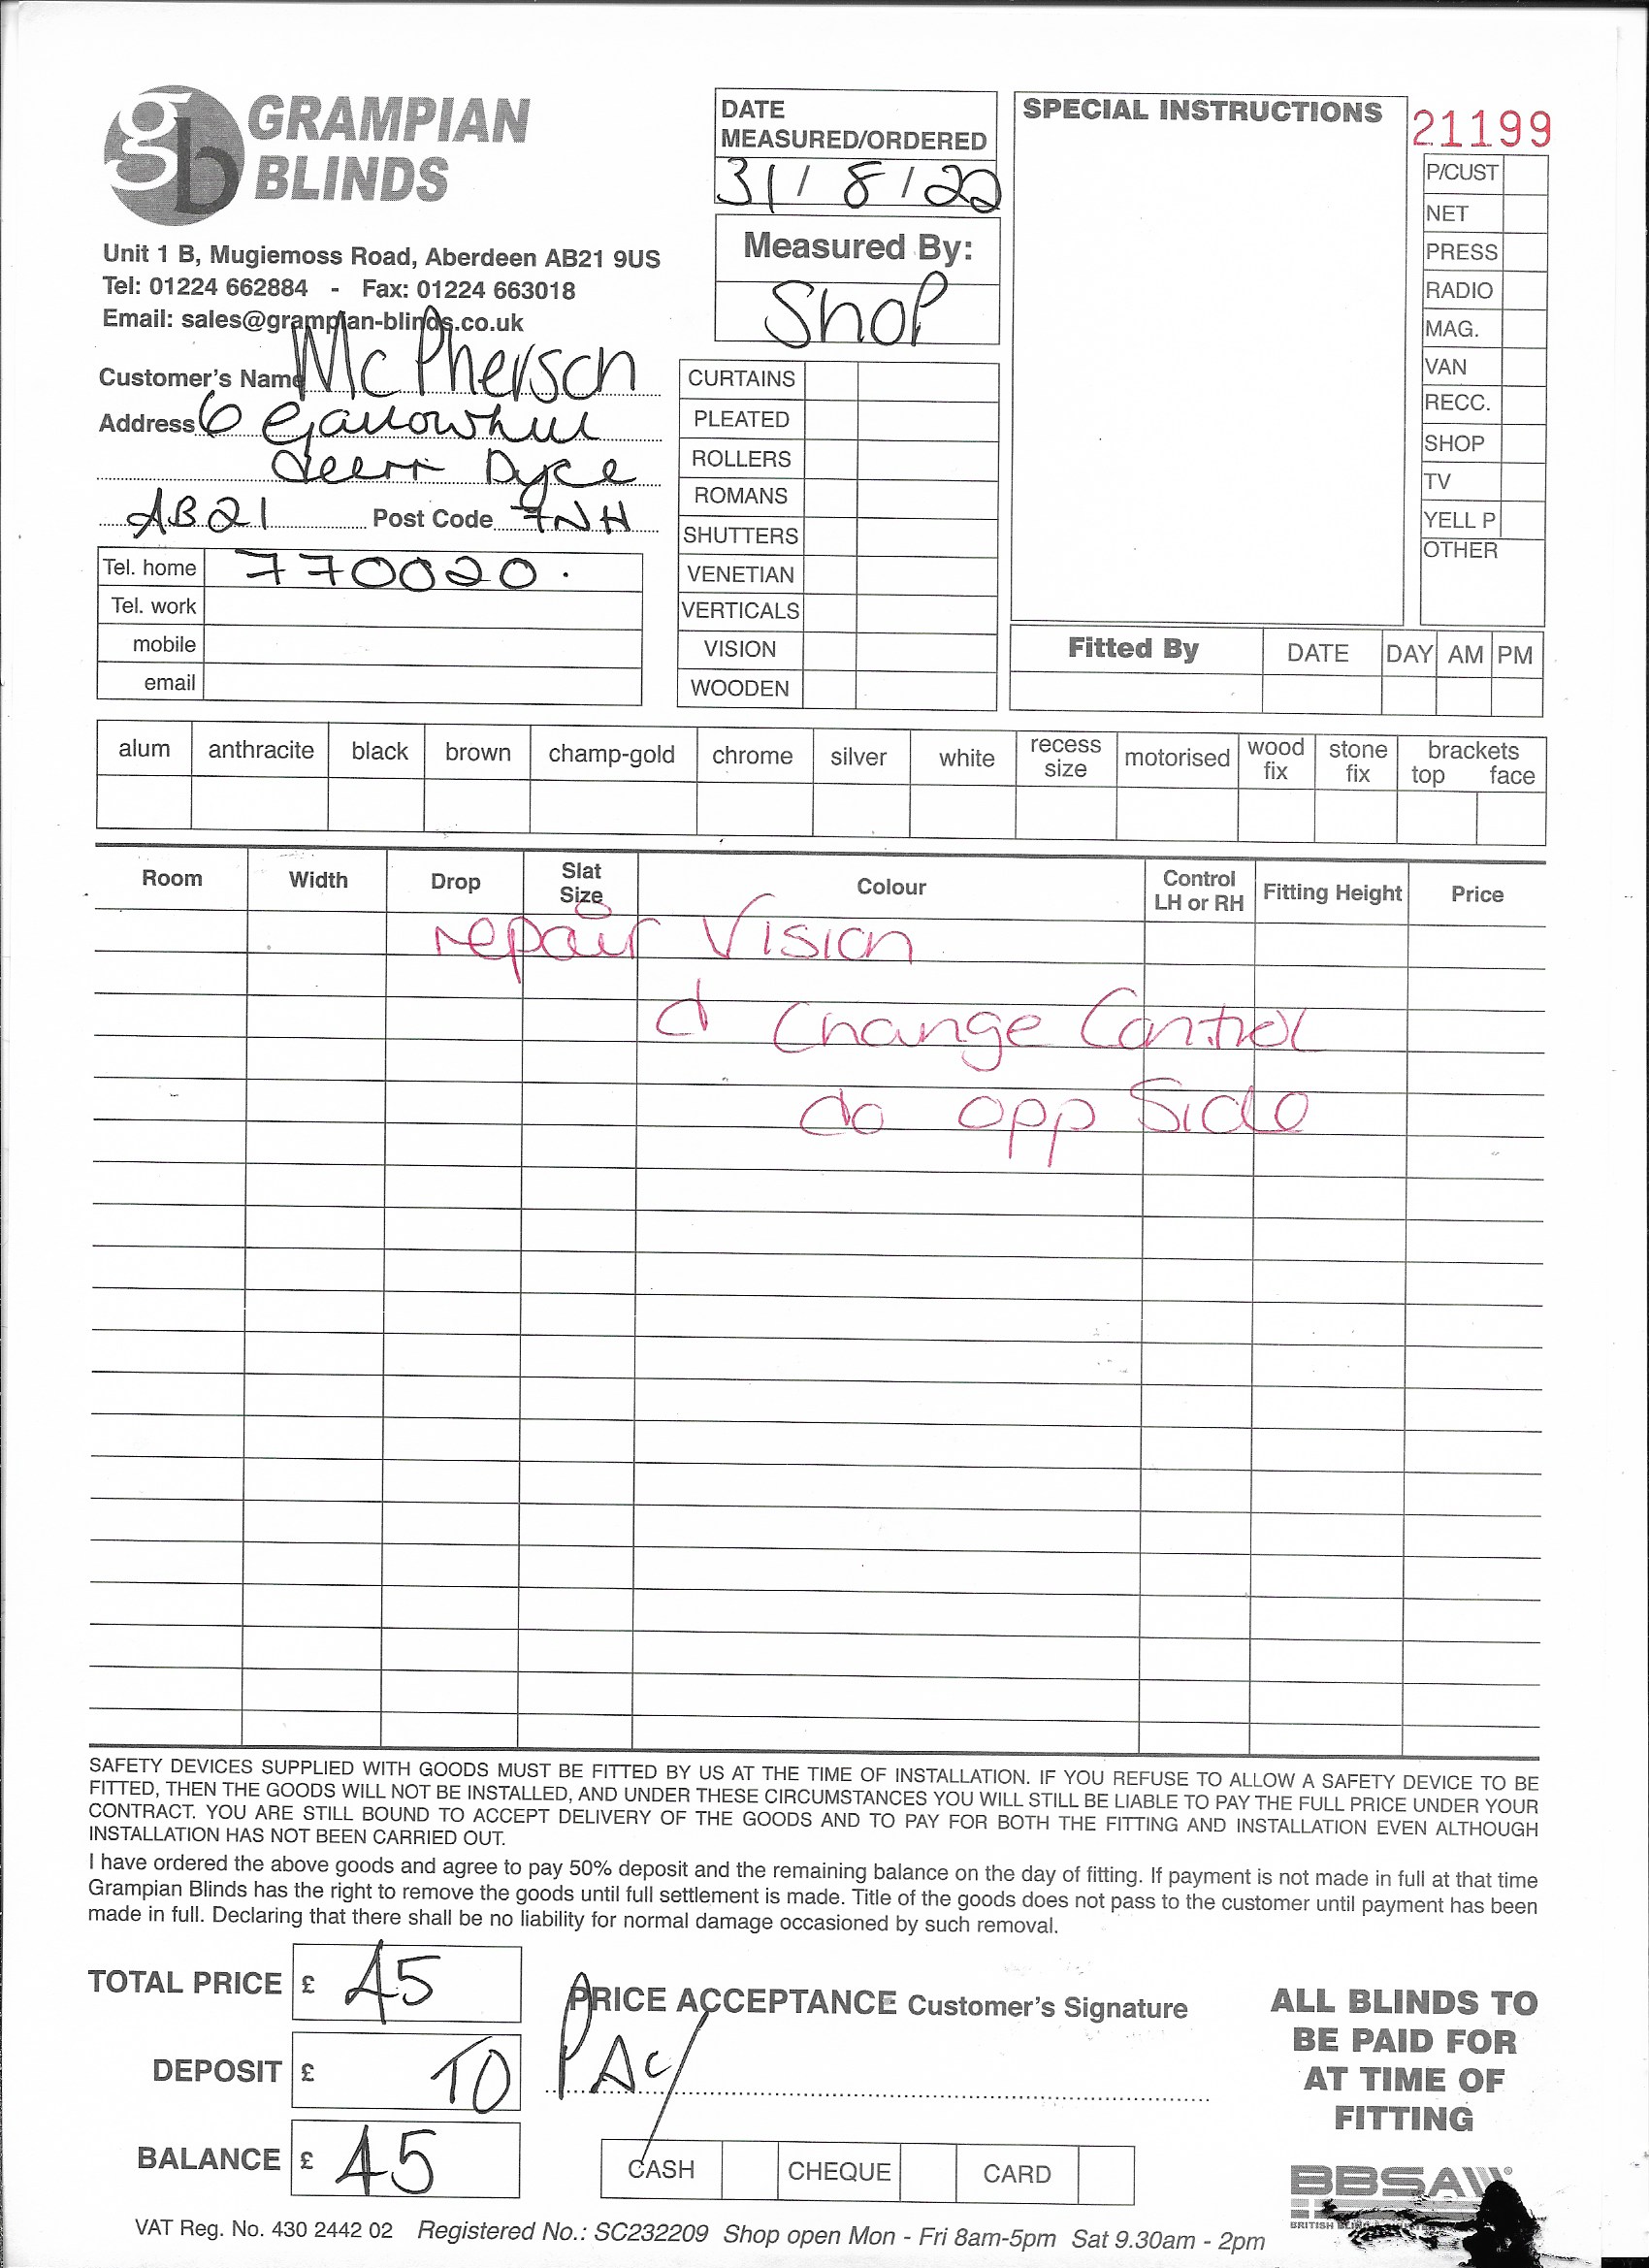 GRAMPIAN
BLINDS
Unit 1 B, Mugiemoss Road, Aberdeen AB21 9US
Tel: 01224 662884 - Fax: 01224 663018
Email: sales@grampian-blinds.co.uk
Customer's Name McPherson
Address 6
Dyce
AB21 Post Code 7NH
Tel. home 770020.
Tel. work
mobile
email
DATE
MEASURED/ORDERED
31/8/22
Measured By:
Shop
CURTAINS
PLEATED
ROLLERS
ROMANS
SHUTTERS
VENETIAN
VERTICALS
VISION
WOODEN
SPECIAL INSTRUCTIONS
21199
P/CUST
NET
PRESS
RADIO
MAG.
VAN
RECC.
SHOP
TV
YELL P
OTHER
Fitted By DATE DAY AM PM
alum anthracite black brown champ-gold chrome silver white recess size motorised wood fix stone fix brackets top face
Room Width Drop Slat Size Colour Control LH or RH Fitting Height Price
repair Vision
Change Control
opp Side
SAFETY DEVICES SUPPLIED WITH GOODS MUST BE FITTED BY US AT THE TIME OF INSTALLATION. IF YOU REFUSE TO ALLOW A SAFETY DEVICE TO BE
FITTED, THEN THE GOODS WILL NOT BE INSTALLED, AND UNDER THESE CIRCUMSTANCES YOU WILL STILL BE LIABLE TO PAY THE FULL PRICE UNDER YOUR
CONTRACT. YOU ARE STILL BOUND TO ACCEPT DELIVERY OF THE GOODS AND TO PAY FOR BOTH THE FITTING AND INSTALLATION EVEN ALTHOUGH
INSTALLATION HAS NOT BEEN CARRIED OUT.
I have ordered the above goods and agree to pay 50% deposit and the remaining balance on the day of fitting. If payment is not made in full at that time
Grampian Blinds has the right to remove the goods until full settlement is made. Title of the goods does not pass to the customer until payment has been
made in full. Declaring that there shall be no liability for normal damage occasioned by such removal.
TOTAL PRICE £ 45
PRICE ACCEPTANCE Customer's Signature
DEPOSIT £ TO PAY
BALANCE £ 45
CASH CHEQUE CARD
ALL BLINDS TO
BE PAID FOR
AT TIME OF
FITTING
BBSA
BRITISH
VAT Reg. No. 430 2442 02 Registered No.: SC232209 Shop open Mon - Fri 8am-5pm Sat 9.30am - 2pm